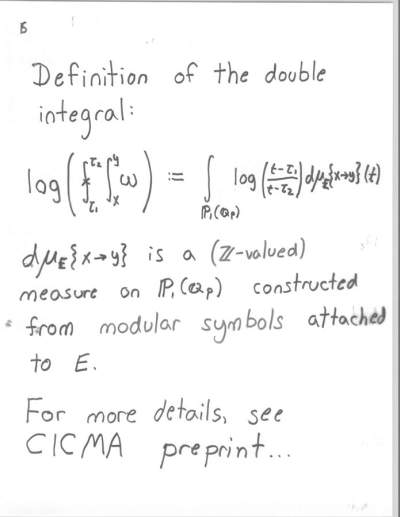 15
Definition of the double
integral:
log(⨍_{τ₁}^{τ₂} ∫_x^y ω) := ∫_{ℙ₁(ℚp)} log((t-τ₁)/(t-τ₂)) dμ_E{x→y}(t)
dμ_E{x→y} is a (ℤ-valued)
measure on ℙ₁(ℚp) constructed
from modular symbols attached
to E.
For more details, see
CICMA preprint...